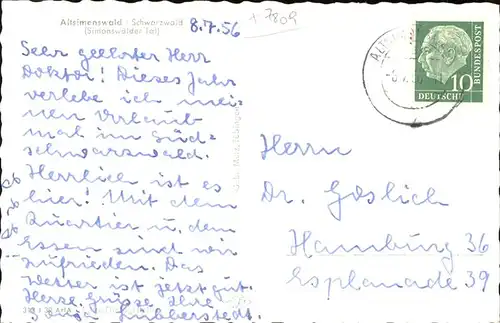 Altsimonswald / Schwarzwald
(Simonswälder Tal)
8.7.56
+ 7809
Sehr geehrter Herr
Doktor! Dieses Jahr
verlebe ich mei-
nen Urlaub
mal im Süd-
schwarzwald.
Herrlich ist es
hier! Mit dem
Quartier u. dem
Essen sind wir
zufrieden. Das
Wetter ist jetzt gut.
Herzl. Grüsse Ihre
Lübberstedt.
10
DEUTSCHE
BUNDESPOST
Herrn
Dr. Goslich
Hamburg 36
Esplanade 39